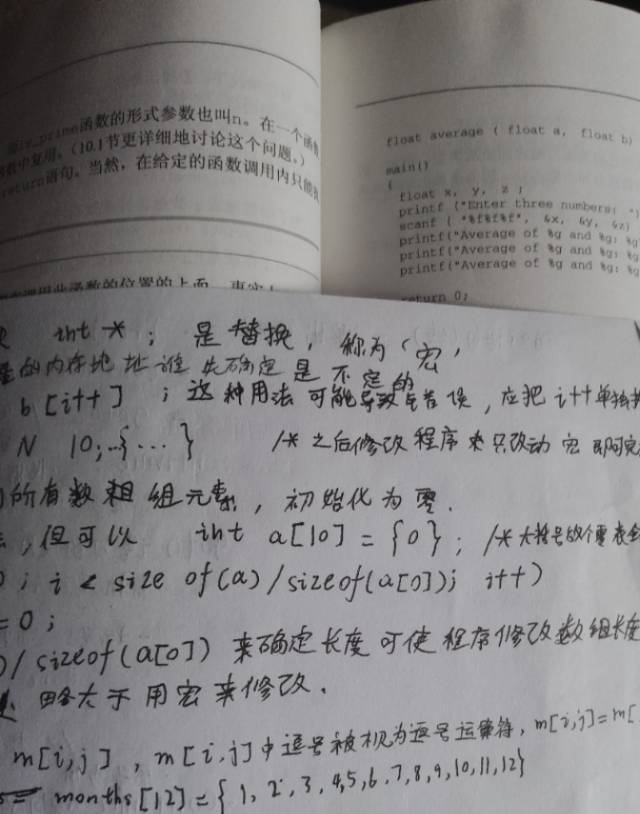 is_prime函数的形式参数也叫n。在一个函数
数中复用。(10.1节更详细地讨论这个问题。)
return语句。当然,在给定的函数调用内只能
float average ( float a, float b)
main()
{
float x, y, z ;
printf ("Enter three numbers: ")
scanf ( "%f%f%f", &x, &y, &z)
printf("Average of %g and %g: %g
printf("Average of %g and %g: %g
printf("Average of %g and %g: %g
return 0;
int * ; 是替换, 称为‘宏’
的内存地址谁先确定是不定的
b [i++] ; 这种用法可能导致错误, 应把 i++单独
N 10; {...} /* 之后修改程序来只改动宏即可
所有数组组元素, 初始化为零.
, 但可以 int a[10] = {0}; /* 大括号的个零表
; i < size of(a)/sizeof(a[0]); i++)
= 0 ;
)/sizeof(a[0]) 来确定长度可使程序修改数组长度
略大于用宏来修改.
m[i,j] , m[i,j]中逗号被视为逗号运算符, m[i,j]=m[
months[12]={1,2,3,4,5,6,7,8,9,10,11,12}